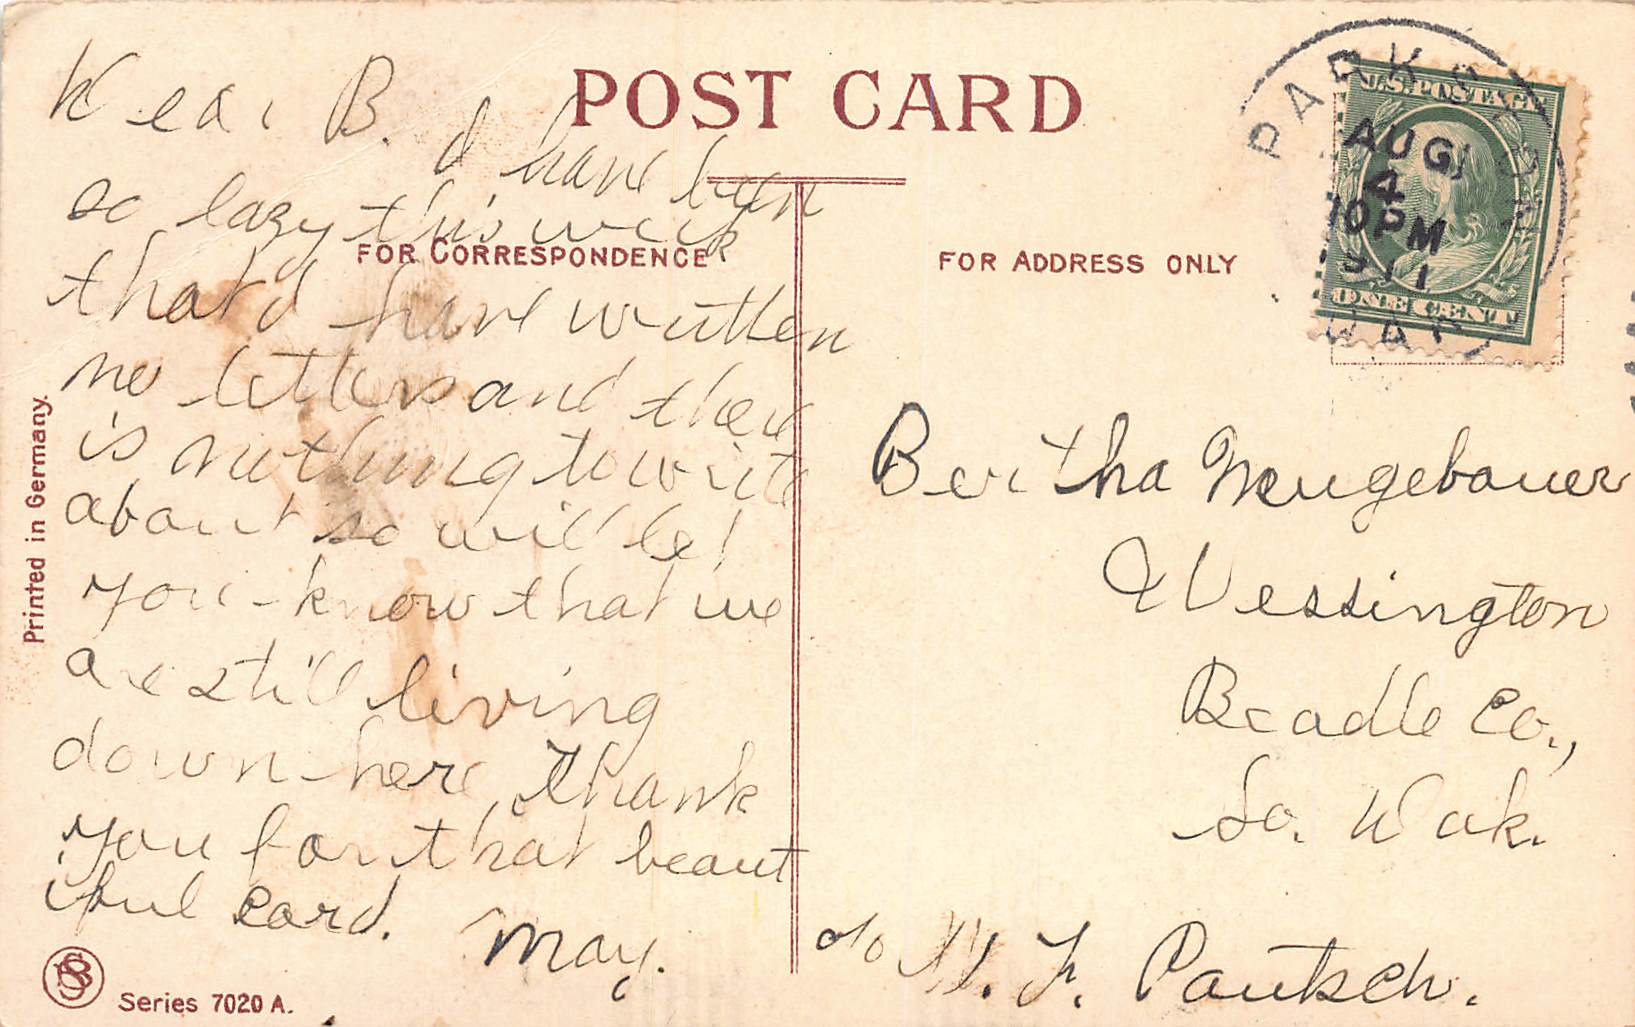 POST CARD
FOR CORRESPONDENCE
FOR ADDRESS ONLY
Dear B. I have been
so lazy this week
that I have written
no letters and there
is nothing to write
about so will let
you know that we
are still living
down here, thank
you for that beaut
iful card.
May.
U.S. POSTAGE
ONE CENT
PARKSTON
AUG
4
10PM
1911
DAK
Bertha Neugebauer
Wessington
Beadle Co.,
So. Dak.
c/o W. F. Pautsch.
Printed in Germany.
SB
Series 7020 A.